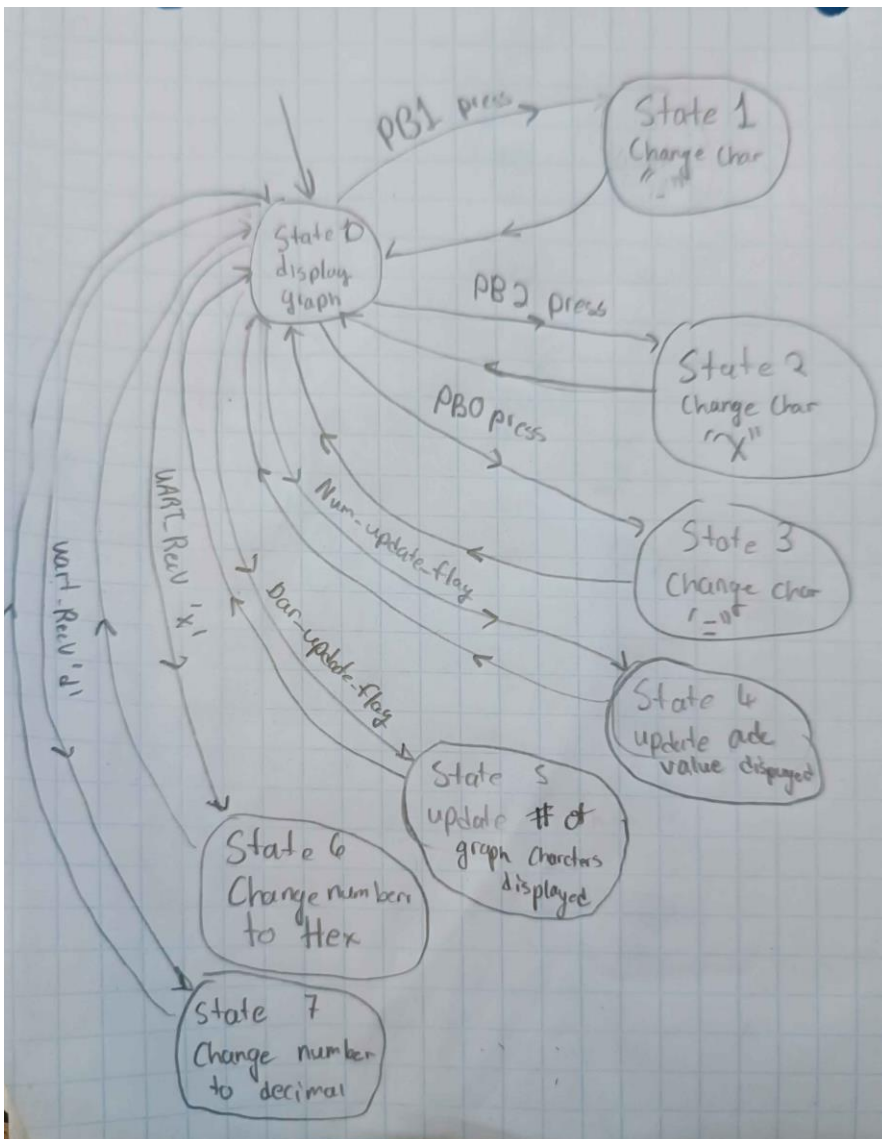 PB1 press
State 1
Change char
"-"
State 0
display
graph
PB2 press
State 2
Change char
"X"
PB0 press
State 3
Change char
"="
Num_update_flag
State 4
update adc
value displayed
Bar_update_flag
State 5
update # of
graph charcters
displayed
UART_RecV 'x'
State 6
Change number
to Hex
uart_RecV 'd'
State 7
Change number
to decimal